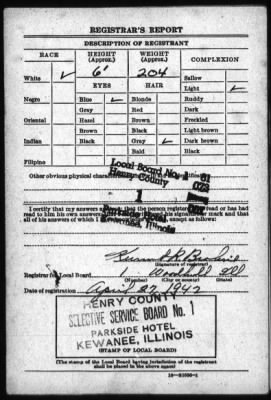 REGISTRAR'S REPORT
DESCRIPTION OF REGISTRANT
RACE
HEIGHT (Approx.)
WEIGHT (Approx.)
COMPLEXION
White ✓ 6' 204 Sallow
EYES HAIR Light ✓
Negro Blue ✓ Blonde Ruddy
Gray Red Dark
Oriental Hazel Brown Freckled
Brown Black Light brown
Indian Black Gray ✓ Dark brown
Bald Black
Filipino
Other obvious physical
Local Board No. 1
Henry County
81
073
1
Parkside Hotel
Kewanee, Illinois
I certify that my answers
that the person registered
read or has had
read to him his own answers
his signature
mark and that
all of his answers of which I
except as follows:
(Signature of registrar)
Registrar for Local Board 1 Ill
(Number) (City or county) (State)
Date of registration April 27, 1942
HENRY COUNTY
SELECTIVE SERVICE BOARD No. 1
PARKSIDE HOTEL
KEWANEE, ILLINOIS
(STAMP OF LOCAL BOARD)
(The stamp of the Local Board having jurisdiction of the registrant
shall be placed in the above space)